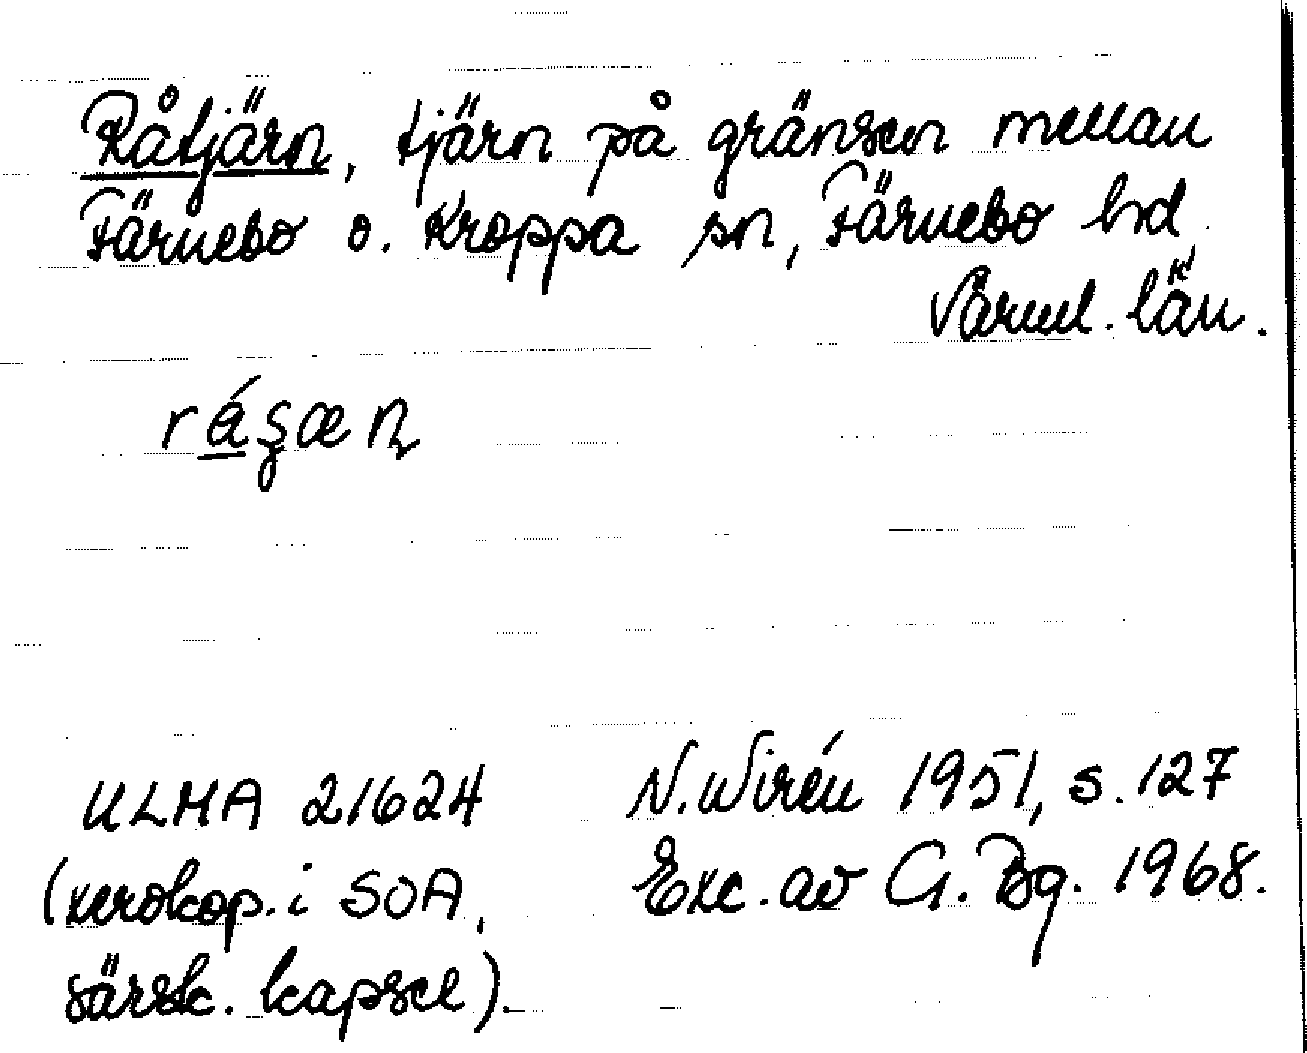 Råtjärn, tjärn på gränsen mellan
Färnebo o. Kroppa sn, Färnebo hd,
Värml. län.
rá̱ʂæɳ
ULMA 21624
(xerokop. i SOA,
särsk. kapsel).
N. Wirén 1951, s. 127
Exc. av G. Bg. 1968.